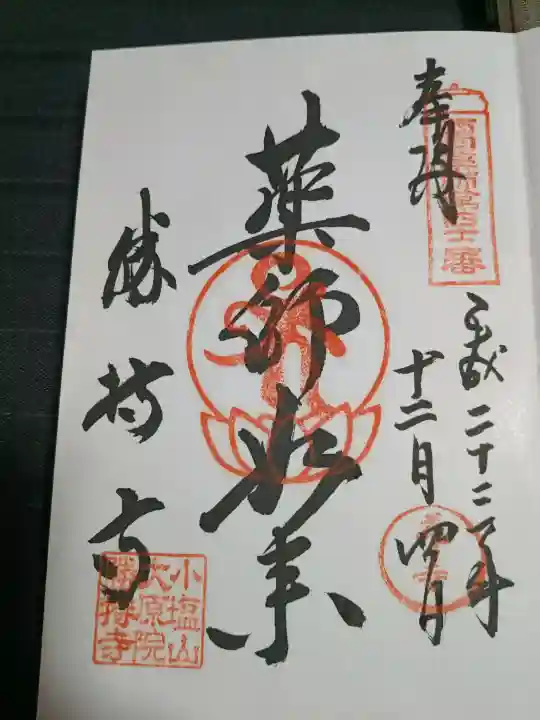 奉拝
西国薬師第四十二番
平成二十二年
十二月四日
薬師如来
勝持寺
小塩山
大原院
勝持寺